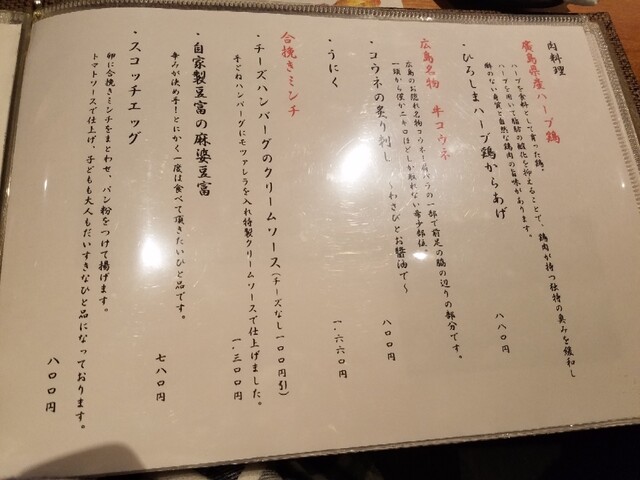 肉料理
廣島県産ハーブ鶏
ハーブを食料として育った鶏。
ハーブを用いて脂肪の酸化を抑えることで、鶏肉が持つ独特の臭みを緩和し
癖のない身質と自然な鶏肉の旨味があります。
・ひろしまハーブ鶏からあげ
八八〇円
広島名物 牛コウネ
広島のお隠れ名物コウネー肩バラの一部で前足の脇の辺りの部分です。
一頭から僅か二キロほどしか取れない希少部位。
・コウネの炙り刺し 〜わさびとお醤油で〜
八〇〇円
・うにく
一、六六〇円
合挽きミンチ
・チーズハンバーグのクリームソース（チーズなし一〇〇円引）
手ごねハンバーグにモツアレラを入れ特製クリームソースで仕上げました。
一、三〇〇円
・自家製豆富の麻婆豆富
辛みが決め手！とにかく一度は食べて頂きたいひと品です。
七八〇円
・スコッチエッグ
卵に合挽きミンチをまとわせ、パン粉をつけて揚げます。
トマトソースで仕上げ、子どもも大人もだいすきなひと品になっております。
八〇〇円